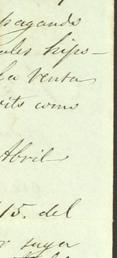 pagando
ales hipo-
la venta
vits como
Abril
15. del
r suya